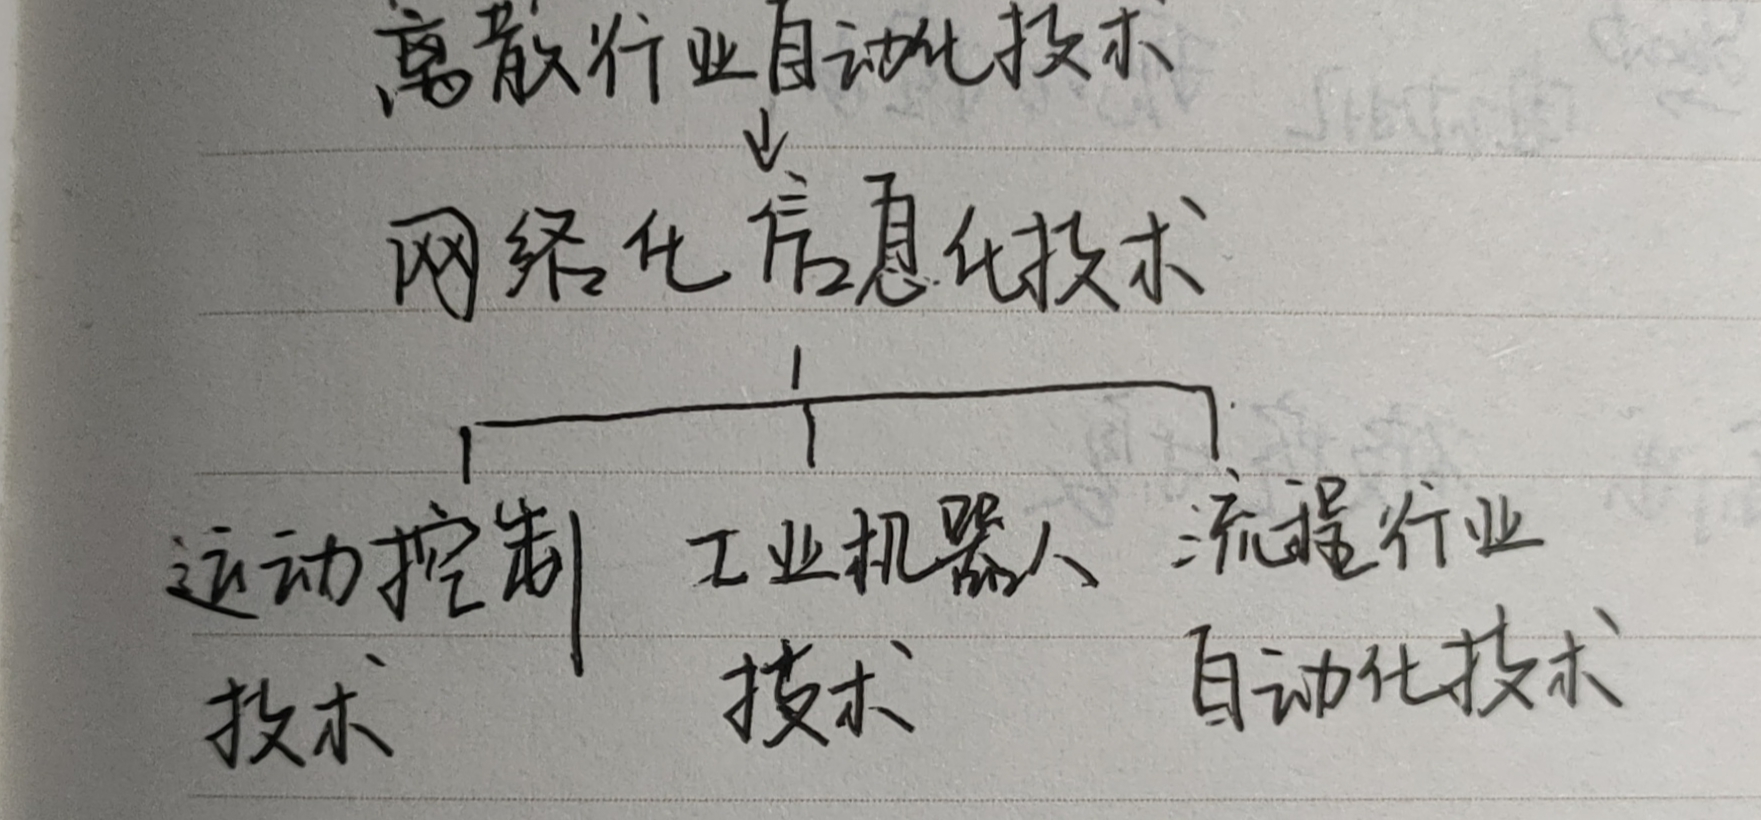 离散行业自动化技术
↓
网络化信息化技术
运动控制 工业机器人 流程行业
技术 技术 自动化技术